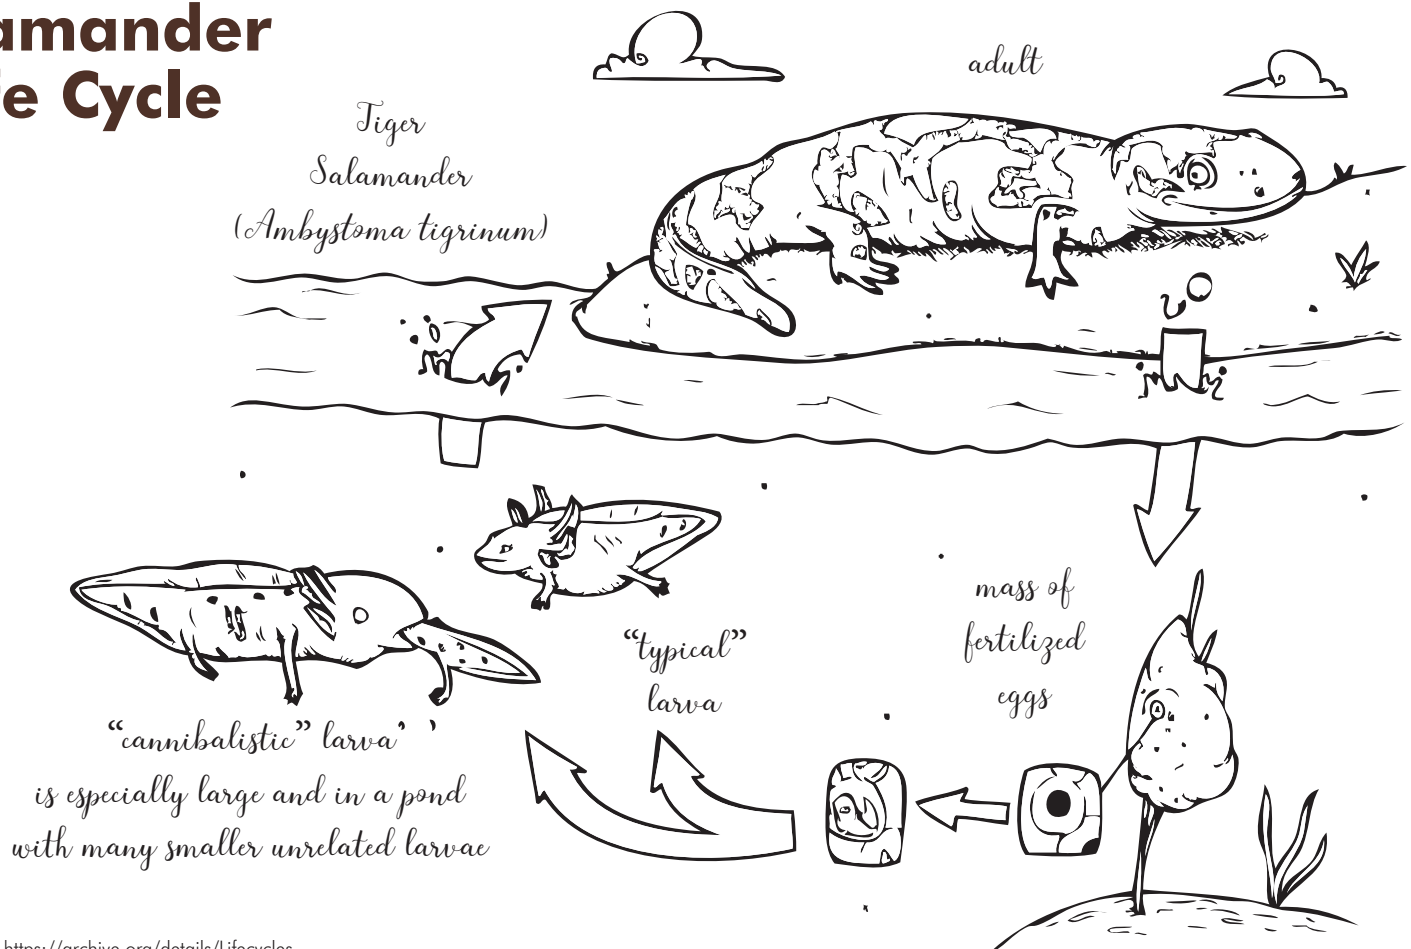 amander
fe Cycle
Tiger
Salamander
(Ambystoma tigrinum)
adult
mass of
fertilized
eggs
"typical"
larva
"cannibalistic" larva
is especially large and in a pond
with many smaller unrelated larvae
https://archive.org/details/Lifecycles